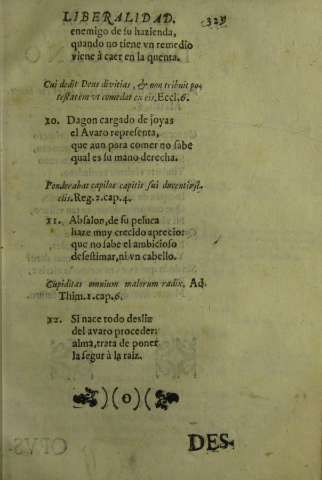 LIBERALIDAD. 323
enemigo de ſu hazienda,
quando no tiene vn remedio
viene à caer en la quenta.
Cui dedit Deus divitias, & non tribuit po-
teſtatem vt comedat ex eis. Eccl. 6.
10. Dagon cargado de joyas
el Avaro repreſenta,
que aun para comer no ſabe
qual es ſu mano derecha.
Ponderabat capilos capitis ſui ducentis
clis. Reg. 2. cap. 4.
11. Abſalon, de ſu peluca
haze muy crecido aprecio:
que no ſabe el ambicioſo
deſeſtimar, ni vn cabello.
Cupiditas omnium malorum radix, Ad
Thim. 1. cap. 6.
12. Si nace todo desliz
del avaro proceder:
alma, trata de poner
la ſegur à la raiz.
DES-